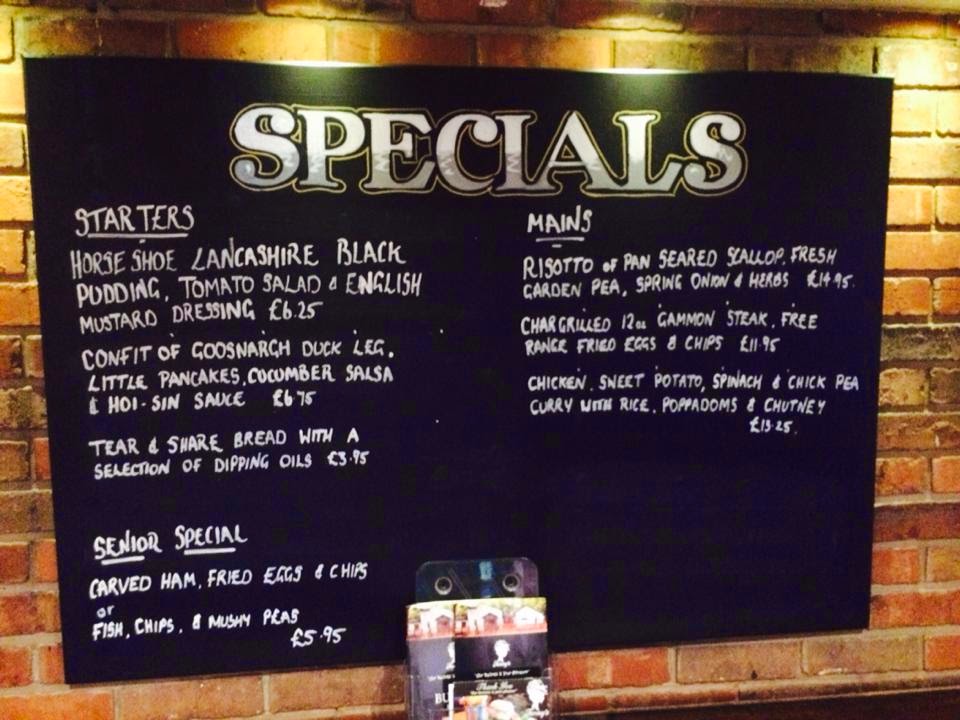 SPECIALS
STARTERS
HORSE SHOE LANCASHIRE BLACK
PUDDING, TOMATO SALAD & ENGLISH
MUSTARD DRESSING £6.25
CONFIT OF GOOSNARGH DUCK LEG,
LITTLE PANCAKES, CUCUMBER SALSA
& HOI-SIN SAUCE £6.75
TEAR & SHARE BREAD WITH A
SELECTION OF DIPPING OILS £3.95
SENIOR SPECIAL
CARVED HAM, FRIED EGGS & CHIPS
or
FISH, CHIPS, & MUSHY PEAS
£5.95
MAINS
RISOTTO of PAN SEARED SCALLOP, FRESH
GARDEN PEA, SPRING ONION & HERBS £14.95.
CHARGRILLED 12oz GAMMON STEAK, FREE
RANGE FRIED EGGS & CHIPS £11.95
CHICKEN, SWEET POTATO, SPINACH & CHICK PEA
CURRY WITH RICE, POPPADOMS & CHUTNEY
£13.25.
Thank You
BU